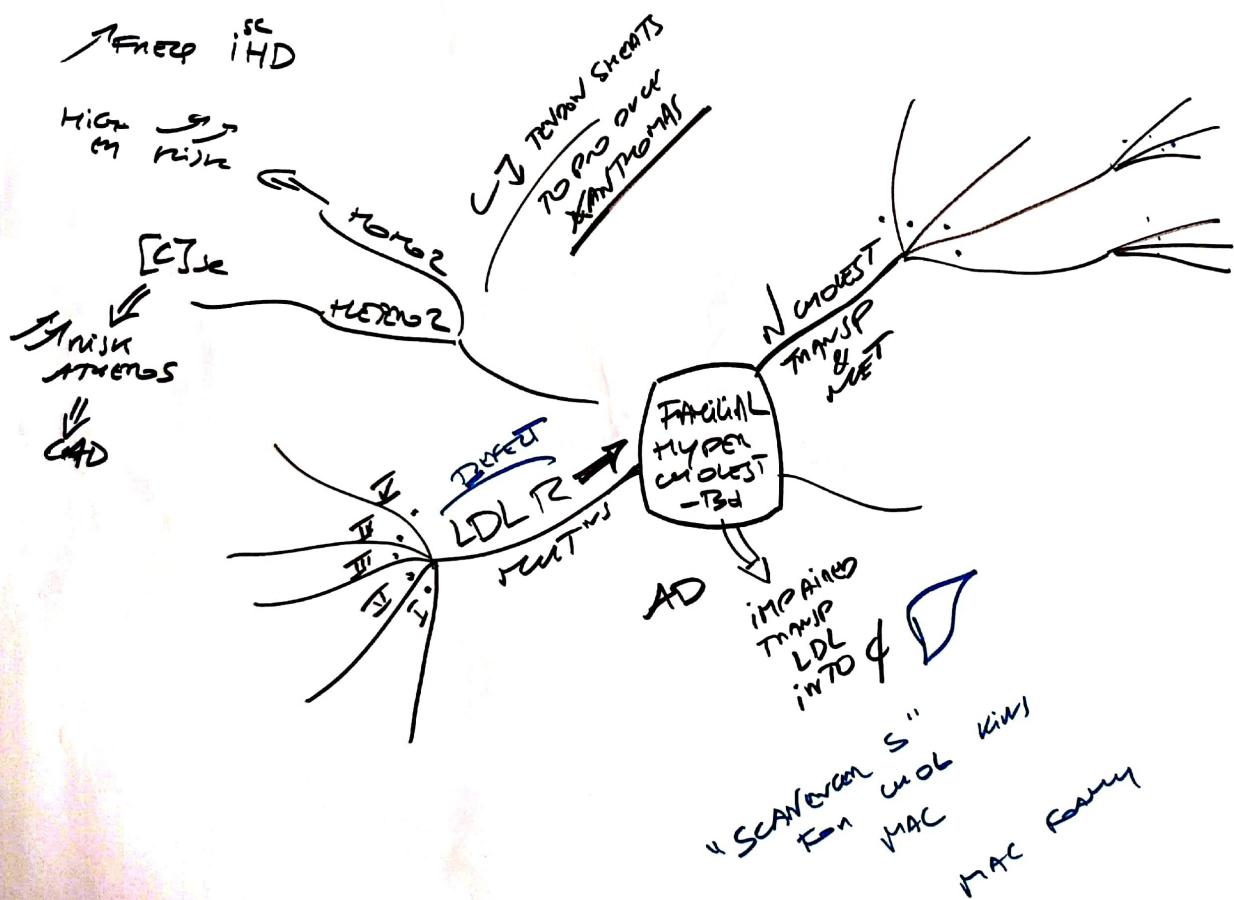 ↗ FREQ isc HD
HIGH
EN RISK
HOMOZ
[C]se
HETEROZ
RISK
ATHEROS
CAD
TENDON SHEATS
TO PRODUCE
XANTHOMAS
N CHOLEST
TRANSP
&
MET
FAMILIAL
HYPER
CHOLEST
DEFECT
LDL R
MUTNS
V
IV
III
II
I
AD
IMPAIRED
TRANSP
LDL
INTO
"SCAVENGER S"
FOR CHOL
MAC
MAC FOAMY